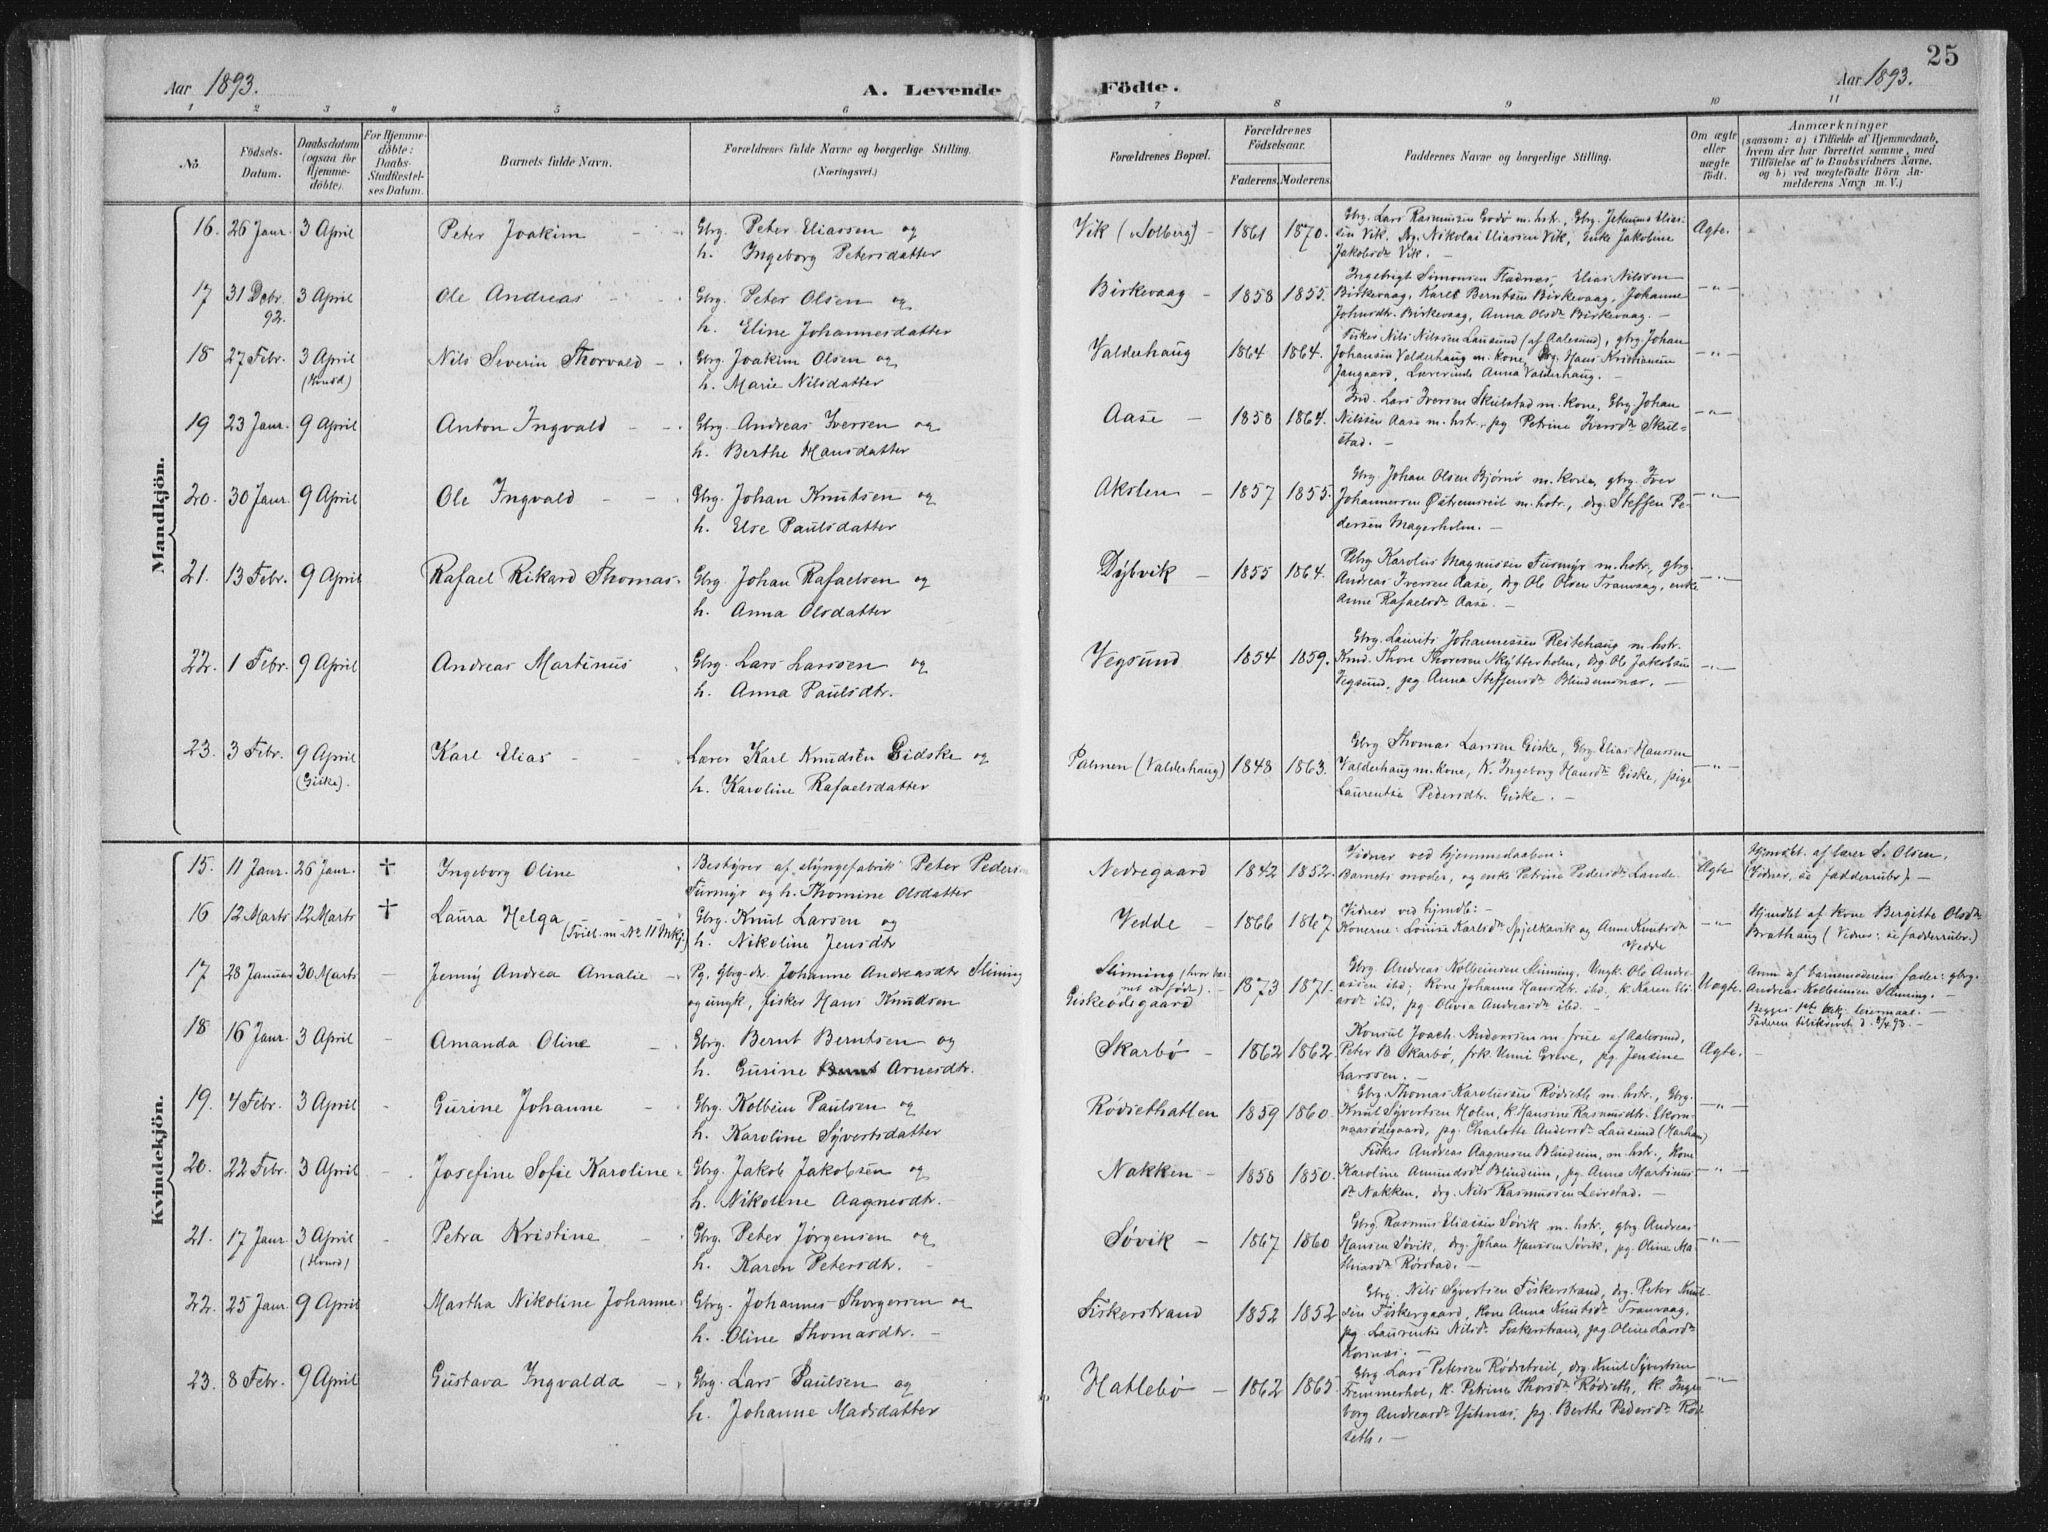 25
Aar 1893.
A. Levende
Födte.
Aar 1893.
1 2 3 4 5 6 7 8 9 10 11
No
Födsels-
Datum.
Daabsdatum
(ogsaa for
Hjemme-
döbte).
For Hjemme-
döbte:
Daabs-
Stadfæstel-
ses Datum.
Barnets fulde Navn.
Forældrenes fulde Navne og borgerlige Stilling.
(Næringsvei.)
Forældrenes Bopæl.
Forældrenes
Födselsaar.
Faderens. Moderens.
Faddernes Navne og borgerlige Stilling.
Om ægte
eller
uægte
født.
Anmærkninger
(saasom: a) i Tilfælde af Hjemmedaab,
hvem der har forrettet samme, med
Tilföielse af to Daabsvidners Navne,
og b) ved uægtefödte Börn An-
melderens Navn m. V.)
Mandkjön.
16. 26 Janr. 3 April Peter Joakim Gbrg. Peter Eliassen og
h. Ingeborg Petersdatter
Vik (Solberg) 1861 1870. Gbrg. Lars Rasmussen Godø m. hstr., Gbrg. Jetmund Elias-
sen Vik, drg. Nikolai Eliassen Vik, Enke Jakobine
Jakobsdr Vik. Ægte.
17 31 Debr. 92. 3 April Ole Andreas Gbrg. Peter Olsen og
h. Eline Johannesdatter
Birkevaag 1858 1855. Ingebrigt Simonsen Fladnæs, Elias Nilssen
Birkevaag, Karl Berntsen Birkevaag, Johanne
Johnsdtr. Birkevaag, Anna Olsdr Birkevaag. -"-
18 27 Febr. 3 April Nils Severin Thorvald Gbrg. Joakim Olsen og
h. Marie Nilsdatter
Valderhaug 1864 1864. Fisker Nils Nilssen Lausund (af Aalesund), gbrg. Johan
Johansen Valderhaug m. kone, Drg. Hans Kristiansen
Jangaard, Lærerinde Anna Valderhaug. -"-
19 23 Janr. 9 April Anton Ingvald Gbrg. Andreas Iversen og
h. Berthe Hansdatter
Aase 1858 1864. Ind. Lars Iversen Skulstad m. kone, Gbrg. Johan
Nilssen Aase m. hstr., pg. Petrine Iversdr Skul-
stad. -"-
20. 30 Janr. 9 April Ole Ingvald Gbrg. Johan Knutsen og
h. Else Paulsdatter
Akslen 1857 1855. Gbrg. Johan Olsen Bjørnø m. kone, gbrg. Iver
Johannessen Østremsvil m. hstr., drg. Steffen Pe-
dersen Magerholm. -"-
21. 13 Febr. 9 April Rafael Rikard Thomas Gbrg. Johan Rafaelsen og
h. Anna Olsdatter
Dybvik 1855 1864. Gbrg. Karolus Magnussen Furmyr m. hstr., gbrg.
Andreas Iversen Aase, drg. Ole Olsen Tranvaag, enke
Anne Rafaelsdr Aase. -"-
22. 1 Febr. 9 April Andreas Martinus Gbrg. Lars Larssen og
h. Anna Paulsdtr.
Vegsund 1854 1859. Gbrg. Laurits Johannessen Reitehaug m. hstr.
Kmd. Thore Thoresen Skytterholm, drg. Ole Jakobsen
Vegsund, pg. Anna Steffensdr Blindemsnæs. -"-
23. 3 Febr. 9 April (Giske). Karl Elias Lærer Karl Knudsen Gidske og
h. Karoline Rafaelsdatter
Palmen (Valderhaug) 1848 1863. Gbrg. Thomas Larssen Giske, Gbrg. Elias Hanssen
Valderhaug m. kone, K. Ingeborg Hansdr Giske, pige
Laurentse Pedersdtr. Giske. -"-
Kvindekjön.
15. 11 Janr. 26 Janr. † Ingeborg Oline Bestyrer af slyngefabrik Peter Pedersen
Furmyr og h. Thomine Olsdatter
Nedregaard 1842 1852. Vidner ved hjemmedaaben:
Barnets moder, og enke Petrine Pedersdr Lande. Ægte
Hjmdbt. af lærer S. Olsen,
(Vidner, se fadderrubr.)
16 12 Marts 12 Marts † Laura Helga (Tvil. m. No 11 Mkj.) Gbrg. Knut Larsen og
h. Nikoline Jensdtr.
Vedde 1866 1867 Vidner ved hjmdb:
Konerne: Louise Karlsdr Spjelkavik og Anne Knutsdr
Vedde -"-
Hjmdbt af kone Bergitte Olsdr
Brathaug (Vidner: se fadderrubr.)
17 28 Januar 30 Marts Jenny Andrea Amalie Pg. Gbrg-dr. Johanne Andreasdtr Slinning
og ungk, fisker Hans Knudsen
Slinning (hvor bar-
net er født).
Giskeødegaard 1873 1871. Gbrg. Andreas Kolbeinsen Slinning, Ungk. Ole Andre-
assen ibd; kone Johanne Hansdtr. ibd, k. Karen Eli-
asdr ibd, pg. Olivia Andreasdr ibd. Uægte.
Anm af barnemoderens fader: gbrg.
Andreas Kolbeinsen Slinning.
Begges 1ste bek. leiermaal.
Faderen tilskrevet d. 8/4 93.
18 16 Janr. 3 April Amanda Oline Gbrg. Bernt Berntsen og
h. Gurine Arnesdtr.
Skarbø 1862 1862 Konsul Joach. Anderssen m. frue af Aalesund,
Peter B Skarbø, frk. Unni Greve, pg. Jensine
Larssen. Ægte.
19. 4 Febr. 3 April Gurine Johanne Gbrg. Kolbein Paulsen og
h. Karoline Syvertsdatter
Rødsethatlen 1859 1860. Gbrg. Thomas Karolussen Rødseth m. hstr., Gbrg.
Knut Syvertsen Holen, k. Hansine Rasmusdtr. Ekorn-
naasødegaard, pg. Charlotte Andersdr Lausund (Harham) -"-
20. 22 Febr. 3 April Josefine Sofie Karoline Gbrg. Jakob Jakobsen og
h. Nikoline Aagnesdtr.
Nakken 1858 1850. Fisker Andreas Aagnesen Blindeim, m. hstr., Kone
Karoline Amundsdr Blindeim, pg. Anna Martinus-
dr Nakken, drg. Nils Rasmussen Leirstad. -"-
21. 17 Janr. 3 April Petra Kristine Gbrg. Peter Jørgensen og
h. Karen Petersdtr.
Søvik 1867 1860 Gbrg Rasmus Eliassen Søvik m. hstr., gbrg Andreas
Hansen Søvik, drg. Johan Hanssen Søvik, pg. Oline Ma-
thiasdr Rørstad. -"-
22. 25 Janr. 9 April Martha Nikoline Johanne Gbrg. Johannes Thorgersen og
h. Oline Thomasdtr.
Fiskerstrand 1852 1852 Gbrg. Nils Syvertsen Fiskerstrand, drg. Peter Knut-
sen Fiskergaard, kone Anna Knutsdr Tranvaag,
pg. Laurentse Nilsdr Fiskerstrand, pg Oline Larsdr
Kornæs. -"-
23. 8 Febr. 9 April Gustava Ingvalda Gbrg. Lars Paulsen og
h. Johanne Madsdatter
Hatlebø 1862 1865 Gbrg. Lars Petersen Rødsetreit, drg. Knut Syvertsen
Fremmerhol, k. Petrine Thorsdr Rødseth, k. Inge-
borg Andreasdr Ytternæs, pg. Berthe Pedersdr Rød-
seth. -"-